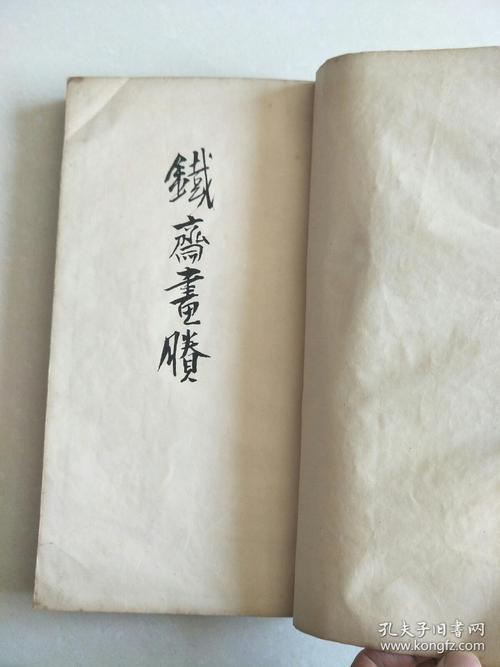 鐵齋畫賸
孔夫子旧书网
www.kongfz.com